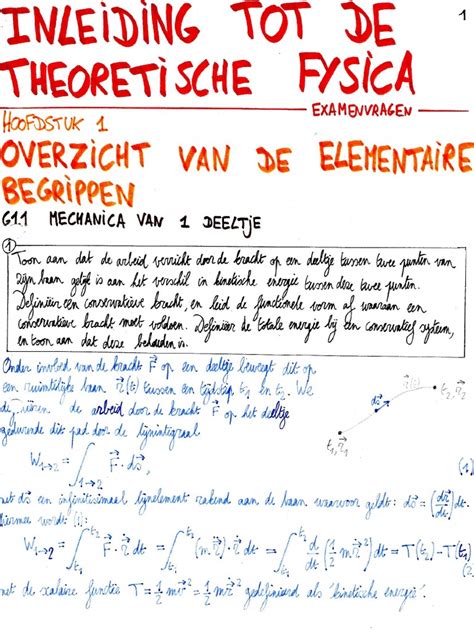 INLEIDING TOT DE 1
THEORETISCHE FYSICA
EXAMENVRAGEN
HOOFDSTUK 1
OVERZICHT VAN DE ELEMENTAIRE
BEGRIPPEN
G1.1 MECHANICA VAN 1 DEELTJE
1
Toon aan dat de arbeid verricht door de kracht op een deeltje tussen twee punten van
zijn baan gelijk is aan het verschil in kinetische energie tussen deze twee punten.
Definieer een conservatieve kracht, en leid de functionele vorm af waaraan een
conservatieve kracht moet voldoen. Definieer de totale energie bij een conservatief systeem,
en toon aan dat deze behouden is.
Onder invloed van de kracht F⃗ op een deeltje beweegt dit op
een ruimtelijke baan r⃗(t) tussen een tijdstip t₁ en t₂. We
definiëren de arbeid door de kracht F⃗ op het deeltje
gedurende dit pad door de lijnintegraal
r⃗(t)
t₂, r⃗₂
ds⃗
t₁, r⃗₁
W₁→₂ = ∫₁→₂ F⃗ · ds⃗, (1)
met ds⃗ een infinitesimaal lijnelement rakend aan de baan waarvoor geldt: ds⃗ = (dr⃗/dt) dt.
Hiermee wordt (1):
W₁→₂ = ∫ₜ₁ᵗ² F⃗ · ṙ⃗ dt = ∫ₜ₁ᵗ² (m r̈⃗) · ṙ⃗ dt = ∫ₜ₁ᵗ² d/dt (½ m ṙ⃗²) dt = T(t₂) - T(t₁) (2)
met de scalaire functie T = ½ m v⃗² = ½ m ṙ⃗² gedefinieerd als "kinetische energie".